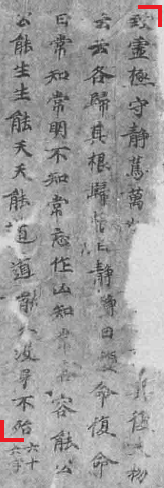 致虛極守靜篤萬復夫物
云云各歸其根歸曰靜靜曰復命復命
曰常知常明不知常忘作凶知常容能公
公能生生能天天能道道能久沒身不殆六十六字